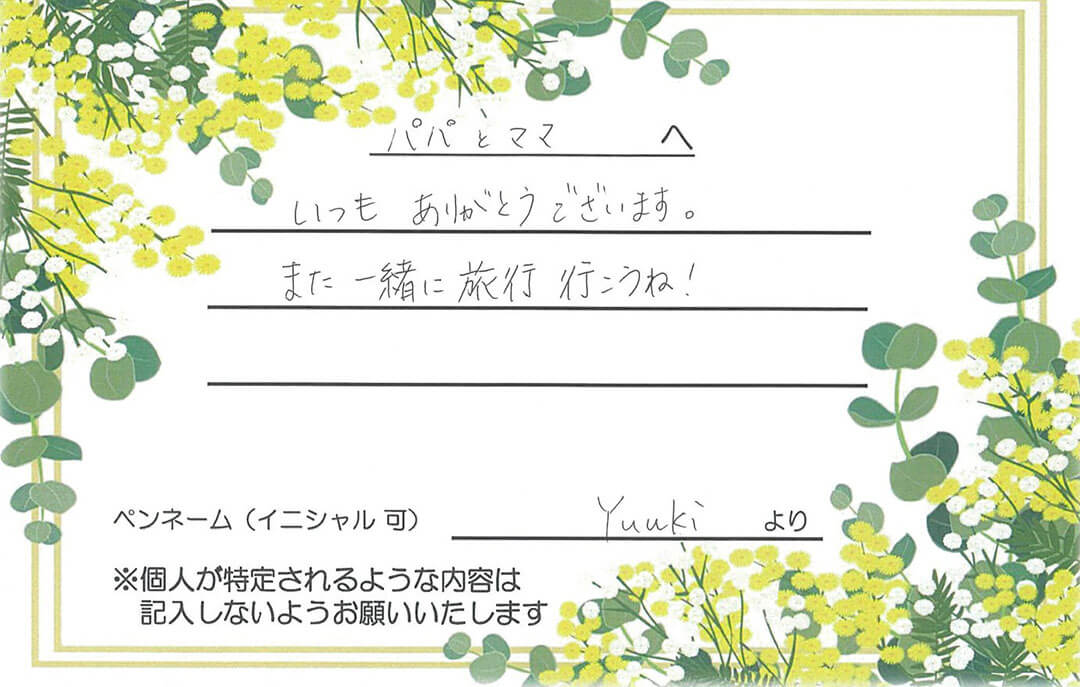 パパとママ へ
いつも ありがとうございます。
また 一緒に 旅行 行こうね!
ペンネーム(イニシャル 可) Yuuki より
※個人が特定されるような内容は
記入しないようお願いいたします